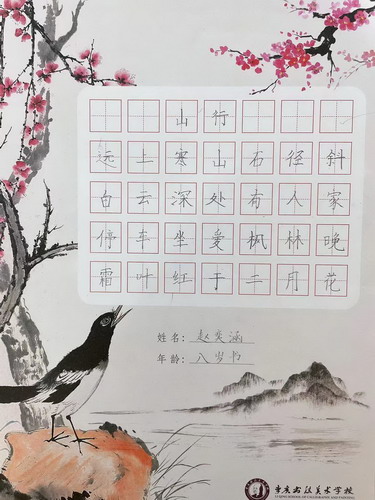 山行
远上寒山石径斜
白云深处有人家
停车坐爱枫林晚
霜叶红于二月花
姓名：赵奕涵
年龄：八岁书